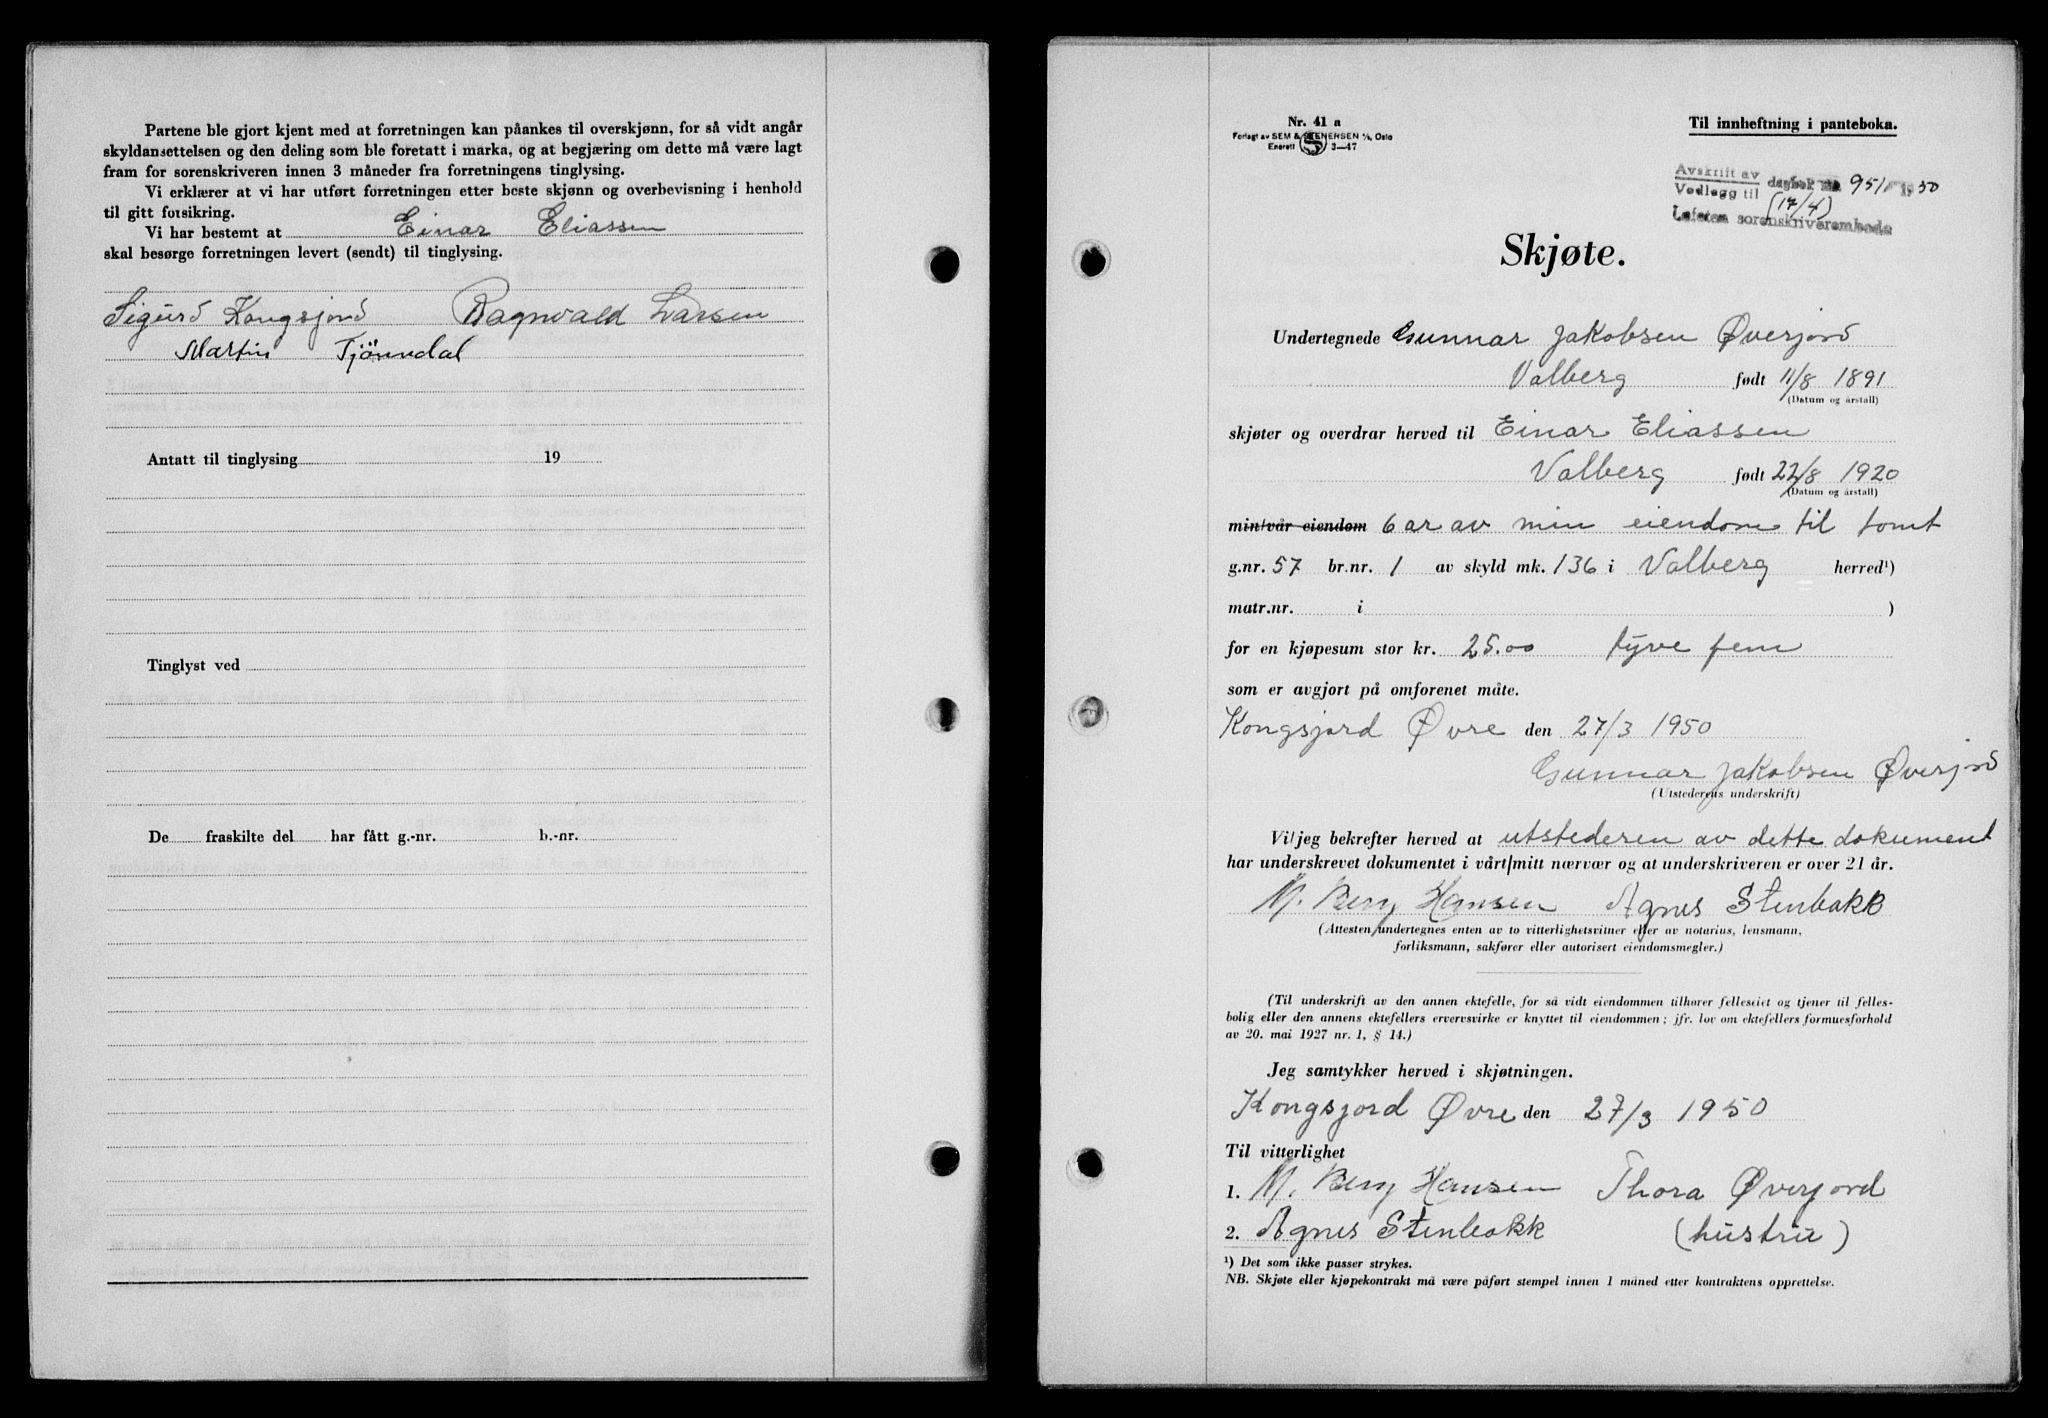 Partene ble gjort kjent med at forretningen kan påankes til overskjønn, for så vidt angår
skyldansettelsen og den deling som ble foretatt i marka, og at begjæring om dette må være lagt
fram for sorenskriveren innen 3 måneder fra forretningens tinglysing.
Vi erklærer at vi har utført forretningen etter beste skjønn og overbevisning i henhold
til gitt forsikring.
Vi har bestemt at Einar Eliassen
skal besørge forretningen levert (sendt) til tinglysing.
Sigurd Kongsjord Ragnvald Larsen
Martin Tjönndal
Antatt til tinglysing 19
Tinglyst ved
De fraskilte del har fått g.-nr. b.-nr.
Nr. 41 a
Forlagt av SEM & STENERSEN A/S, Oslo
Enerett S 3-47
Til innheftning i panteboka.
Avskrift av
Vedlegg til dagbok 951 1950
(17/4)
Lofoten sorenskriverembede
Skjøte.
Undertegnede Gunnar Jakobsen Øverjord
Valberg født 11/8 1891
(Datum og årstall)
skjøter og overdrar herved til Einar Eliassen
Valberg født 22/8 1920
(Datum og årstall)
min/vår eiendom 6 ar av min eiendom til tomt
g.nr. 57 br.nr. 1 av skyld mk. 136 i Valberg herred¹)
matr.nr. i )
for en kjøpesum stor kr. 25.00 tyve fem
som er avgjort på omforenet måte.
Kongsjord Øvre den 27/3 1950
Gunnar Jakobsen Øverjord
(Utstederens underskrift)
Vi/jeg bekrefter herved at utstederen av dette dokument
har underskrevet dokumentet i vårt/mitt nærvær og at underskriveren er over 21 år.
M. Berg Hansen Agnes Stenbakk
(Attesten undertegnes enten av to vitterlighetsvitner eller av notarius, lensmann,
forliksmann, sakfører eller autorisert eiendomsmegler.)
(Til underskrift av den annen ektefelle, for så vidt eiendommen tilhører felleseiet og tjener til felles-
bolig eller den annens ektefellers ervervsvirke er knyttet til eiendommen; jfr. lov om ektefellers formuesforhold
av 20. mai 1927 nr. 1, § 14.)
Jeg samtykker herved i skjøtningen.
Kongsjord Øvre den 27/3 1950
Til vitterlighet
1. M. Berg Hansen Thora Øverjord
2. Agnes Stenbakk (hustru)
¹) Det som ikke passer strykes.
NB. Skjøte eller kjøpekontrakt må være påført stempel innen 1 måned etter kontraktens opprettelse.